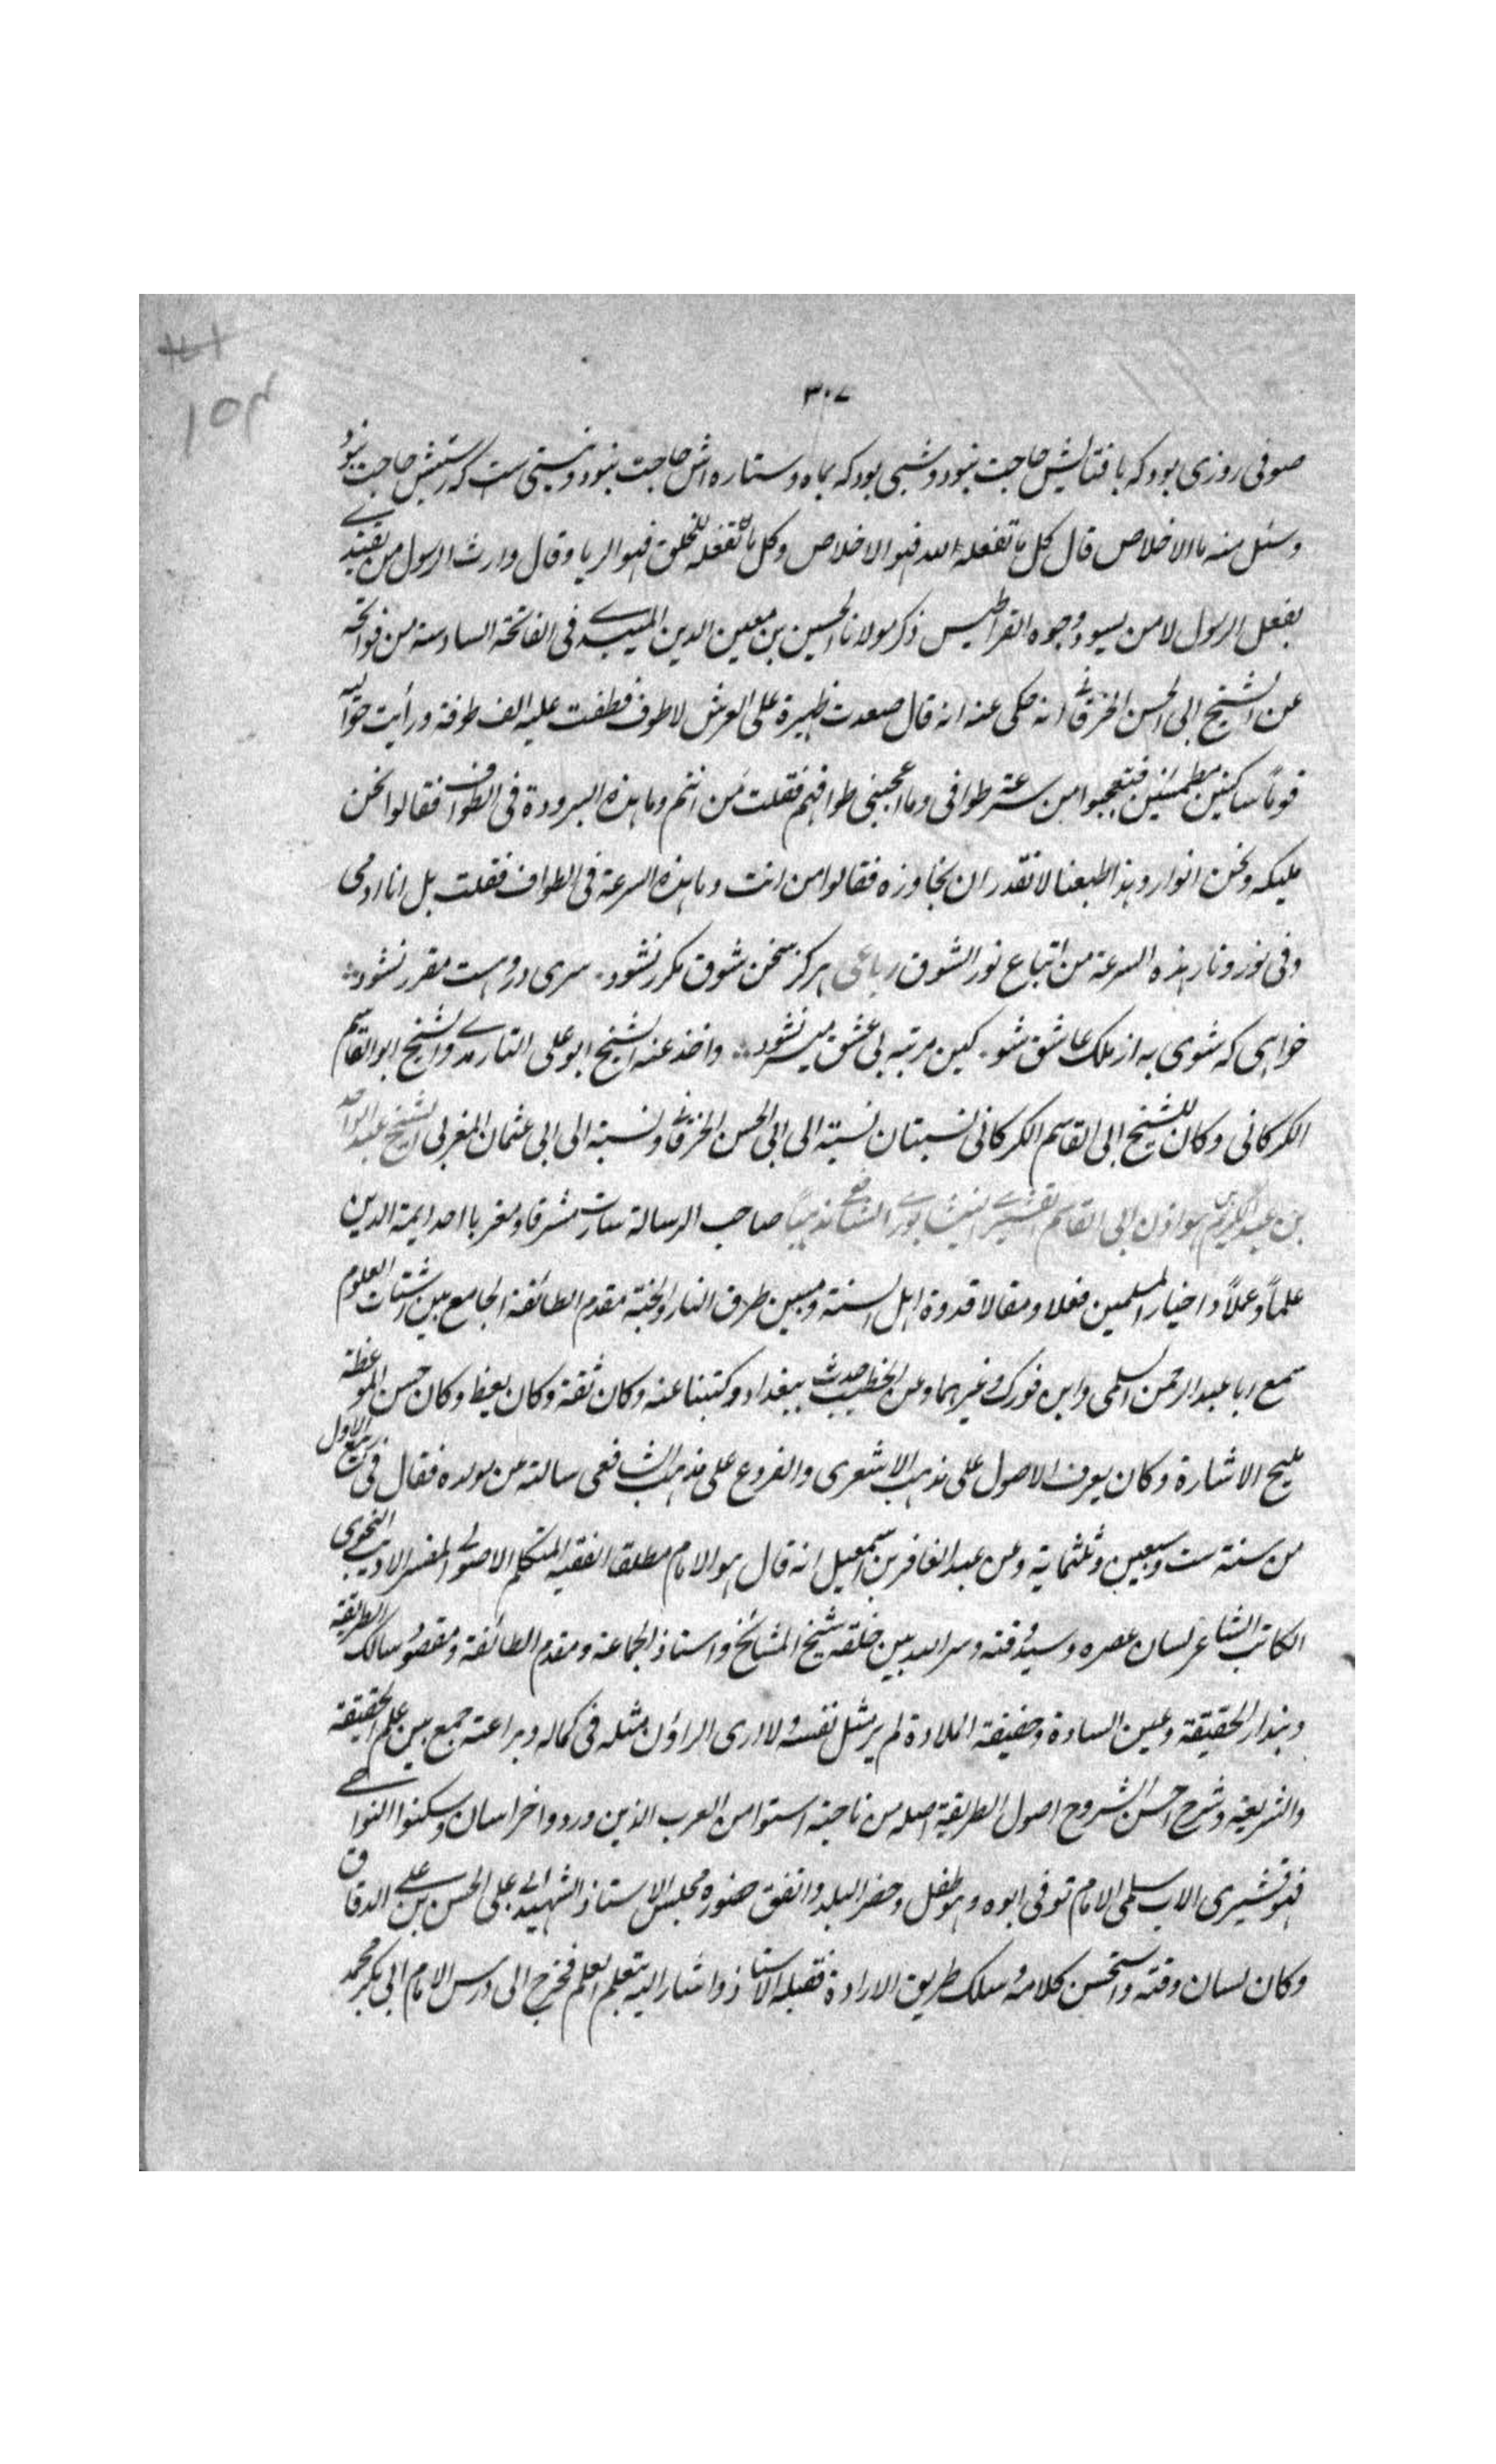 ٣٠٧
١٥٤
صوفی روزی بود که بافتابش حاجت نبود و شبی بود که بماه و ستاره اش حاجت نبود و نیستی ست که هستیش حاجت نبود
وسئل منه ما الاخلاص قال کل ما تفعله لله فهو الاخلاص وکل ما تفعله للخلق فهو الریا وقال وارث الرسول من یقتدی
بفعل الرسول لا من یسود وجوه القراطیس ذکر مولانا الحسین بن معین الدین المیبدے فی الفاتحة السادسة من فواتحه
عن الشیخ ابی الحسن الخرقانے انه حکی عنه انه قال صعدت ظهیرة علی العرش لاطوف فطفت علیه الف طوفة ورأیت حوالیه
قوماً ساکنین مطمئنین فتعجبوا من سرعة طوافی وما اعجبنی طوافهم فقلت من انتم وما هذه البرودة فی الطواف فقالوا نحن
ملیکه ونحن انوار وهذا طبعنا لا نقدر ان نجاوزه فقالوا من انت وما هذه السرعة فی الطواف فقلت بل انا ادمی
وفی نور ونار هذه السرعة من اتباع نور الشوق رباعی هرکز سخن شوق مکرر نشود سری دروست مقرر نشود
خواهی که شوی به از ملک عاشق شو کین مرتبه بی عشق میسر نشود واخذ عنه الشیخ ابو علی الفارمدے والشیخ ابو القاسم
الکرکانی وکان للشیخ ابی القاسم الکرکانی نسبتان نسبة الی ابی الحسن الخرقانے ونسبة الی ابی عثمان المغربی الشیخ عبد الواحد
بن عبد الکریم بن هوازن ابی القاسم القشیرے النیشابورے الشافعے مذهباً صاحب الرسالة سارت مشرقا ومغربا احد ایمة الدین
علماً وعملاً واخیار المسلمین فعلا ومقالا قدوة اهل السنة ومبین طرق النار والجنة مقدم الطائفة الجامع بین اشتات العلوم
سمع ابا عبد الرحمن السلمی وابن فورک وغیرهما وعن الخطیب حدث ببغداد وکتبنا عنه وکان ثقة وکان یعظ وکان حسن الموعظة
ملیح الاشارة وکان یعرف الاصول علی مذهب الاشعری والفروع علی مذهب الشافعی سالته عن مولده فقال فی ربیع الاول
من سنة ست وسبعین وثلثمایة وعن عبد الغافر بن اسمعیل انه قال هو الامام مطلقا الفقیه المتکلم الاصولے المفسر الادیب النحوی
الکاتب الشاعر لسان عصره وسید وقته وسر الله بین خلقه شیخ المشائخ واستاذ الجماعة ومقدم الطائفة ومقصود سالک الطریقة
وبندار الحقیقة وعین السادة وحقیقة الملادة لم یر مثل نفسه ولا ارى الراؤن مثله فی کماله وبراعته جمع بین علم الحقیقة
والشریعة وشرح احسن الشروح اصول الطریقة اصله من ناحیة استوا من العرب الذین وردوا خراسان وسکنوا النواحے
فهو قشیری الاب سلمی الام توفی ابوه وهو طفل وحضر البلد واتفق حضوره مجلس الاستاذ الشهید ابے علی الحسن بن علے الدقاق
وکان لسان وقته واستحسن کلامه وسلک طریق الارادة فقبله الاستاذ واشار الیه بتعلم العلم فخرج الی درس الامام ابی بکر محمد